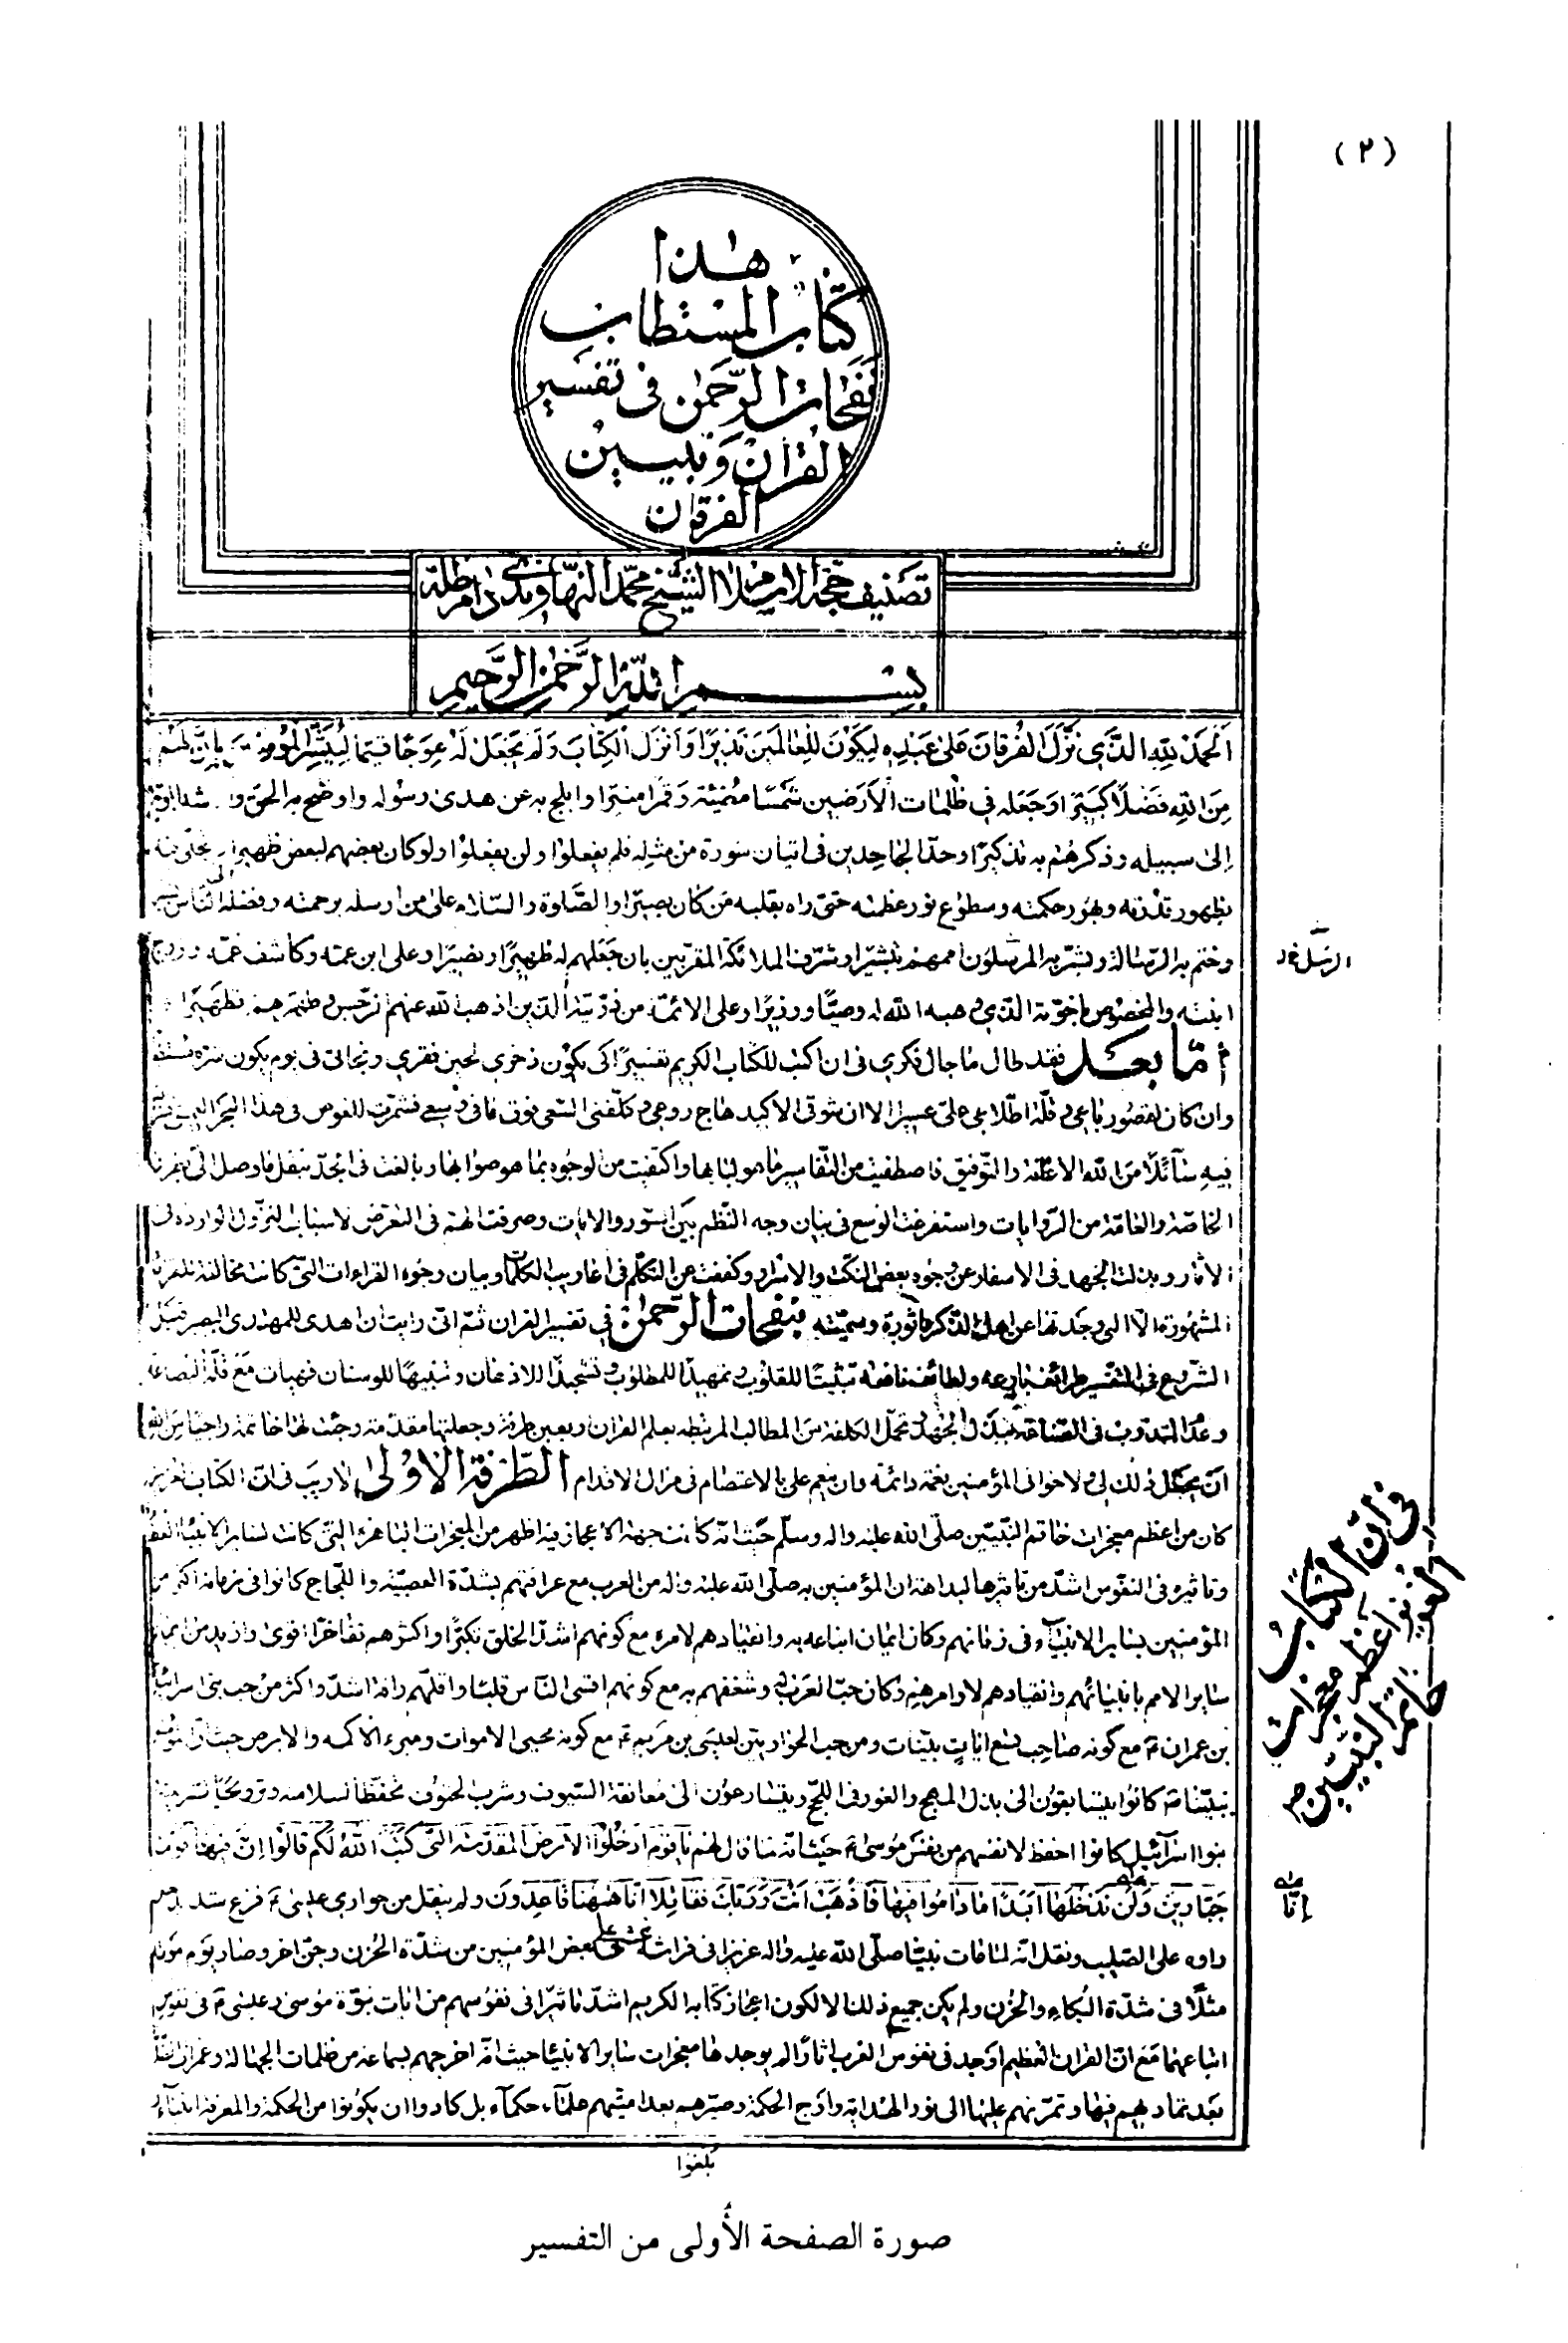 (٢)
هذا
كتاب المستطاب
نفحات الرحمن في تفسير
القرآن وتبيين
الفرقان
تصنيف حجة الاسلام الشيخ محمد النهاوندي دام ظله
بسم الله الرحمن الرحيم
الحمد لله الذي نزل الفرقان على عبده ليكون للعالمين نذيرا وأنزل الكتاب ولم يجعل له عوجا قيما ليبشر المؤمنين بأن لهم
من الله فضلا كبيرا وجعله في ظلمات الأرضين شمسا مضيئة وقمرا منيرا وابلج به عن هدى رسوله واوضح به الحق و
إلى سبيله وذكرهم به تذكيرا وحدا الجاحدين في اتيان سورة من مثله فلم يفعلوا ولن يفعلوا ولو كان بعضهم لبعض ظهيرا تجلى فيه
بظهور قدرته وبهور حكمته وسطوع نور عظمته حتى راه بقلبه من كان بصيرا والصلوة والسلام على من ارسله برحمته وفضله الى الناس
وختم به الرسالة وبشر به المرسلون اممهم تبشيرا وشرف الملائكة المقربين بان جعلهم له ظهيرا ونصيرا وعلى ابن عمه وكاشف غمه وزوج
الرسل
ابنته والمخصوص باخوته الذي وهبه الله له وصيا ووزيرا وعلى الائمة من ذريته الذين اذهب الله عنهم الرجس وطهرهم تطهيرا
أما بعد فقد طال ما جال فكري في ان اكتب للكتاب الكريم تفسيرا كي يكون ذخري لحين فقري ونجاتي في يوم يكون شره
وان كان لقصور باعي وقلة اطلاعي علي عسيرا الا ان شوقي الاكيد هاج روعي وكلفني السعي فوق ما في وسعي فشمرت للغوص في هذا البحر
فيه سائلا من الله الاعانة والتوفيق فاصطفيت من التفاسير ما هو لبابها واكتفيت من الوجوه بما هو صوابها وبالغت في الجد بنقل ما وصل الي من
الخاصة والعامة من الروايات واستفرغت الوسع في بيان وجه النظم بين السور والايات وصرفت الهمة في التعرض لاسباب النزول الواردة في
الاثار وبذلت الجهد في الاسفار عن وجوه بعض النكت والاسرار وكففت عن التكلم في اعاريب الكلمات وبيان وجوه القراءات التي كانت مخالفة للقراءة
المشهورة الا التي وجدتها عن اهل الذكر مأثورة وسميته بنفحات الرحمن في تفسير القرآن ثم اني رايت ان اهدي للمهتدي البصير قبل
الشروع في التفسير طرائف بارعة ولطائف نافعة تثبيتا للقلوب وتمهيدا للمطلوب وتشحيذا للاذهان وتنبيها للوسنان فهيات مع قلة البضاعة
الصناعة ببذل الجهد تحمل الكلفة من المطالب المرتبطة بعلم القران وجعلتها مقدمة وجئت لها خاتمة
ان يجعل ذلك لي ولاخواني المؤمنين نعمة دائمة وان ينعم علي بالاعتصام في مزال الاقدام الطرفة الأولى لا ريب في ان الكتاب العزيز
كان من اعظم معجزات خاتم النبيين صلى الله عليه واله وسلم حيث انه كانت جهة الاعجاز فيه اظهر من المعجزات الباهرة التي كانت لسائر الانبياء
في ان الكتاب
العزيز اعظم
معجزات
خاتم النبيين ص
وتاثيره في النفوس اشد من تاثيرها لبداهة ان المؤمنين به صلى الله عليه واله من العرب مع عرافتهم بشدة العصبية واللجاج كانوا في زمانه اكثر من
المؤمنين بسائر الانبياء في زمانهم وكان ايمان اتباعه به وانقيادهم لامره مع كونهم اشد الخلق تكبرا واكثرهم تفاخرا اقوى وازيد من ايمان
سائر الامم بانبيائهم وانقيادهم لاوامرهم وكان حب العرب له وشغفهم به مع كونهم اقسى الناس قلبا واقلهم رافة اشد واكثر من حب بني اسرائيل
بن عمران ع مع كونه صاحب تسع ايات بينات ومن حب الحواريين لعيسى بن مريم ع مع كونه محيي الاموات ومبرء الاكمه والابرص حيث ان
نبينا ص كانوا يتسابقون الى بذل المهج والغور في اللجج ويتسارعون الى معانقة السيوف وشرب الحتوف تحفظا لسلامته وترويجا لشريعته
بنوا اسرائيل كانوا احفظ لانفسهم من نفس موسى ع حيث انه لما قال لهم يا قوم ادخلوا الأرض المقدسة التي كتب الله لكم قالوا ان فيها قوما
جبارين ولن ندخلها أبدا ما داموا فيها فاذهب أنت وربك فقاتلا انا ههنا قاعدون ولم ينقل من حواري عيسى ع فزع شديد
إنا
راوه على الصليب ونقل انه لما مات نبينا صلى الله عليه واله عزيزا في فراشه غشي على بعض المؤمنين من شدة الحزن وجن اخر وصار يوم موته
مثلا في شدة البكاء والحزن ولم يكن جميع ذلك الا لكون اعجاز كتابه الكريم اشد تاثيرا في نفوسهم من ايات نبوة موسى وعيسى ع في نفوس
اتباعهما مع ان القران العظيم اوجد في نفوس العرب اثارا لم يوجدها معجزات سائر الانبياء حيث انه اخرجهم بسماعه من ظلمات الجهالة
بعد تماديهم فيها وتمرنهم عليها الى نور الهداية واوج الحكمة وصيرهم بعد اميتهم علماء حكماء بل كادوا ان يكونوا من الحكمة والمعرفة انبياء
بلغوا
صورة الصفحة الأولى من التفسير